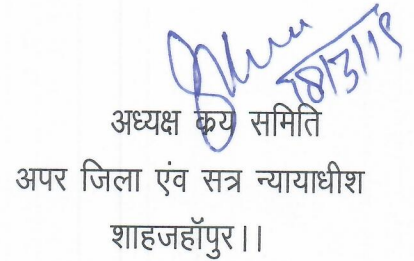 18/3/19
अध्यक्ष कय समिति
अपर जिला एंव सत्र न्यायाधीश
शाहजहॉपुर।।